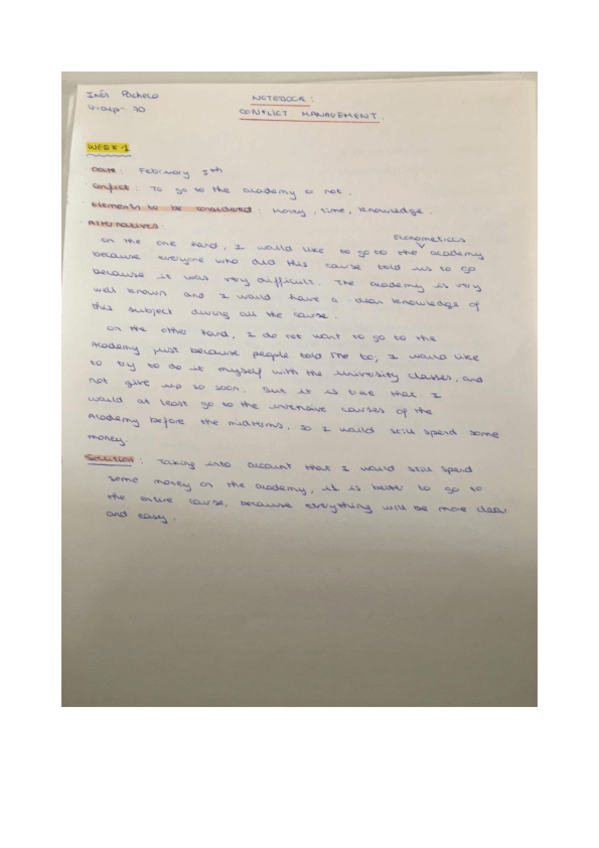 Inés Pacheco
NOTEBOOK:
CONFLICT MANAGEMENT.
WEEK 1
Date: February 5th
Conflict: To go to the academy or not.
Elements to be considered: Money, time, knowledge.
Alternatives:
Econometrics
On the one hand, I would like to go to the academy
because everyone who did this course told us to go
because it was very difficult. The academy is very
well known and I would have a clear knowledge of
this subject during all the course.
On the other hand, I do not want to go to the
Academy just because people told me to, I would like
to try to do it myself with the university classes, and
not give up so soon. But it is true that I
would at least go to the intensive courses of the
Academy before the midterms, so I would still spend some
money.
Solution: Taking into account that I would still spend
some money on the academy, it is better to go to
the entire course, because everything will be more clear
and easy.